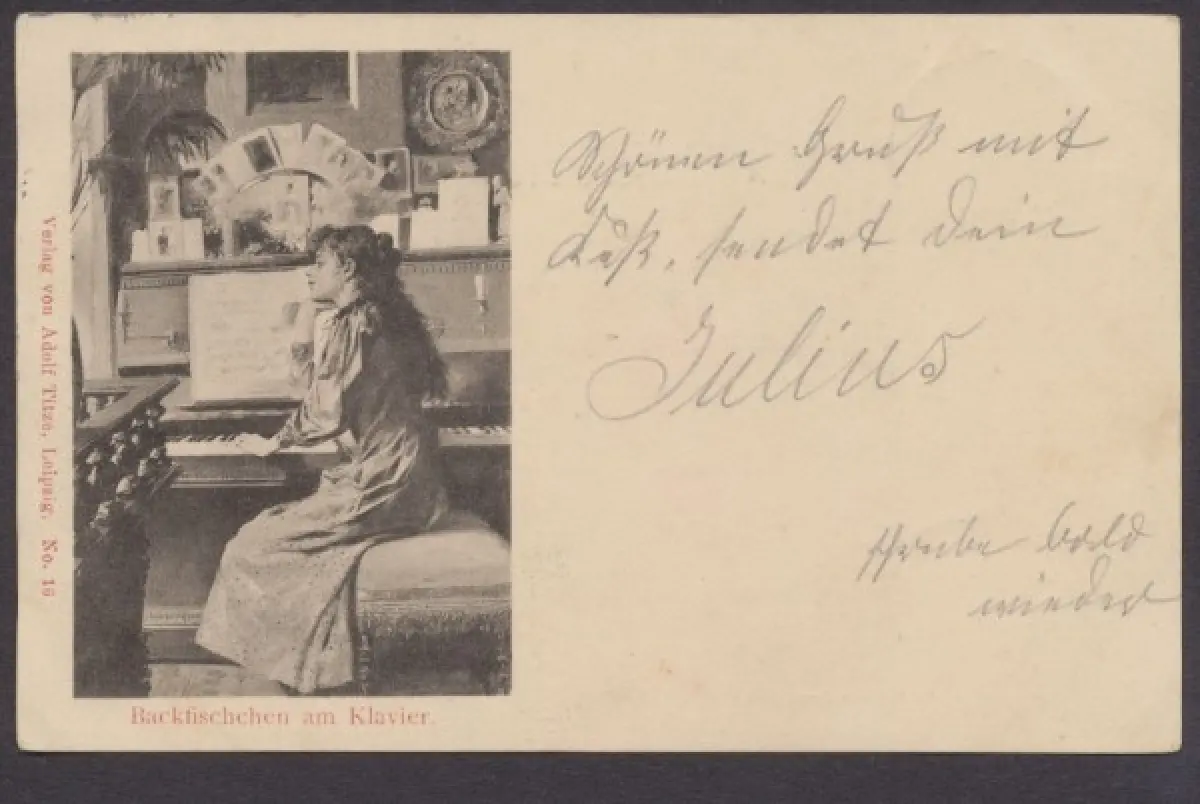 Schönen Gruß mit
Kuß, sendet Dein
Julius
schreibe bald
wieder
Verlag von Adolf Titze, Leipzig. No. 16
Backfischchen am Klavier.